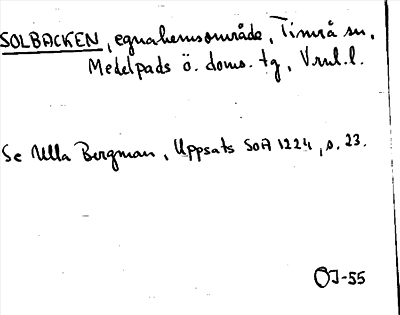 SOLBACKEN, egnahemsområde, Timrå sn,
Medelpads ö. doms. tg, V.nrl.l.
Se Ulla Bergman, Uppsats SOA 1224, s. 23.
OJ-55